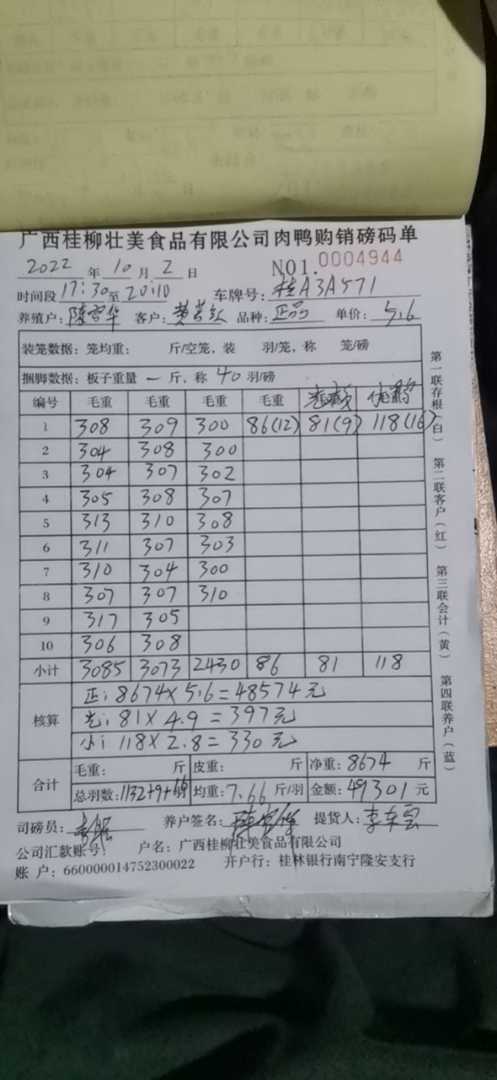 广西桂柳壮美食品有限公司肉鸭购销磅码单
2022 年 10 月 2 日 NO1. 0004944
时间段 17:30 至 20:10 车牌号: 桂A3A571
养殖户: 陈雪华 客户: 品种: 正品 单价: 5.6
装笼数据: 笼均重: 斤/空笼, 装 羽/笼, 称 笼/磅
捆脚数据: 板子重量 一 斤, 称 40 羽/磅
编号 毛重 毛重 毛重 毛重
1 308 309 300 86(12) 81(9) 118(16)
2 304 308 300
3 304 307 302
4 305 308 307
5 313 310 308
6 311 307 303
7 310 304 300
8 307 307 310
9 317 305
10 306 308
小计 3085 3073 2430 86 81 118
核算
正: 8674×5.6=48574元
光: 81×4.9=397元
小: 118×2.8=330元
合计 毛重: 斤 皮重: 斤 净重: 8674 斤
总羽数: 1132+9+16 均重: 7.66 斤/羽 金额: 49301 元
司磅员: 养户签名: 提货人:
公司汇款账号: 户名: 广西桂柳壮美食品有限公司
账 户: 660000014752300022 开户行: 桂林银行南宁隆安支行
第一联存根(白) 第二联客户(红) 第三联会计(黄) 第四联养户(蓝)